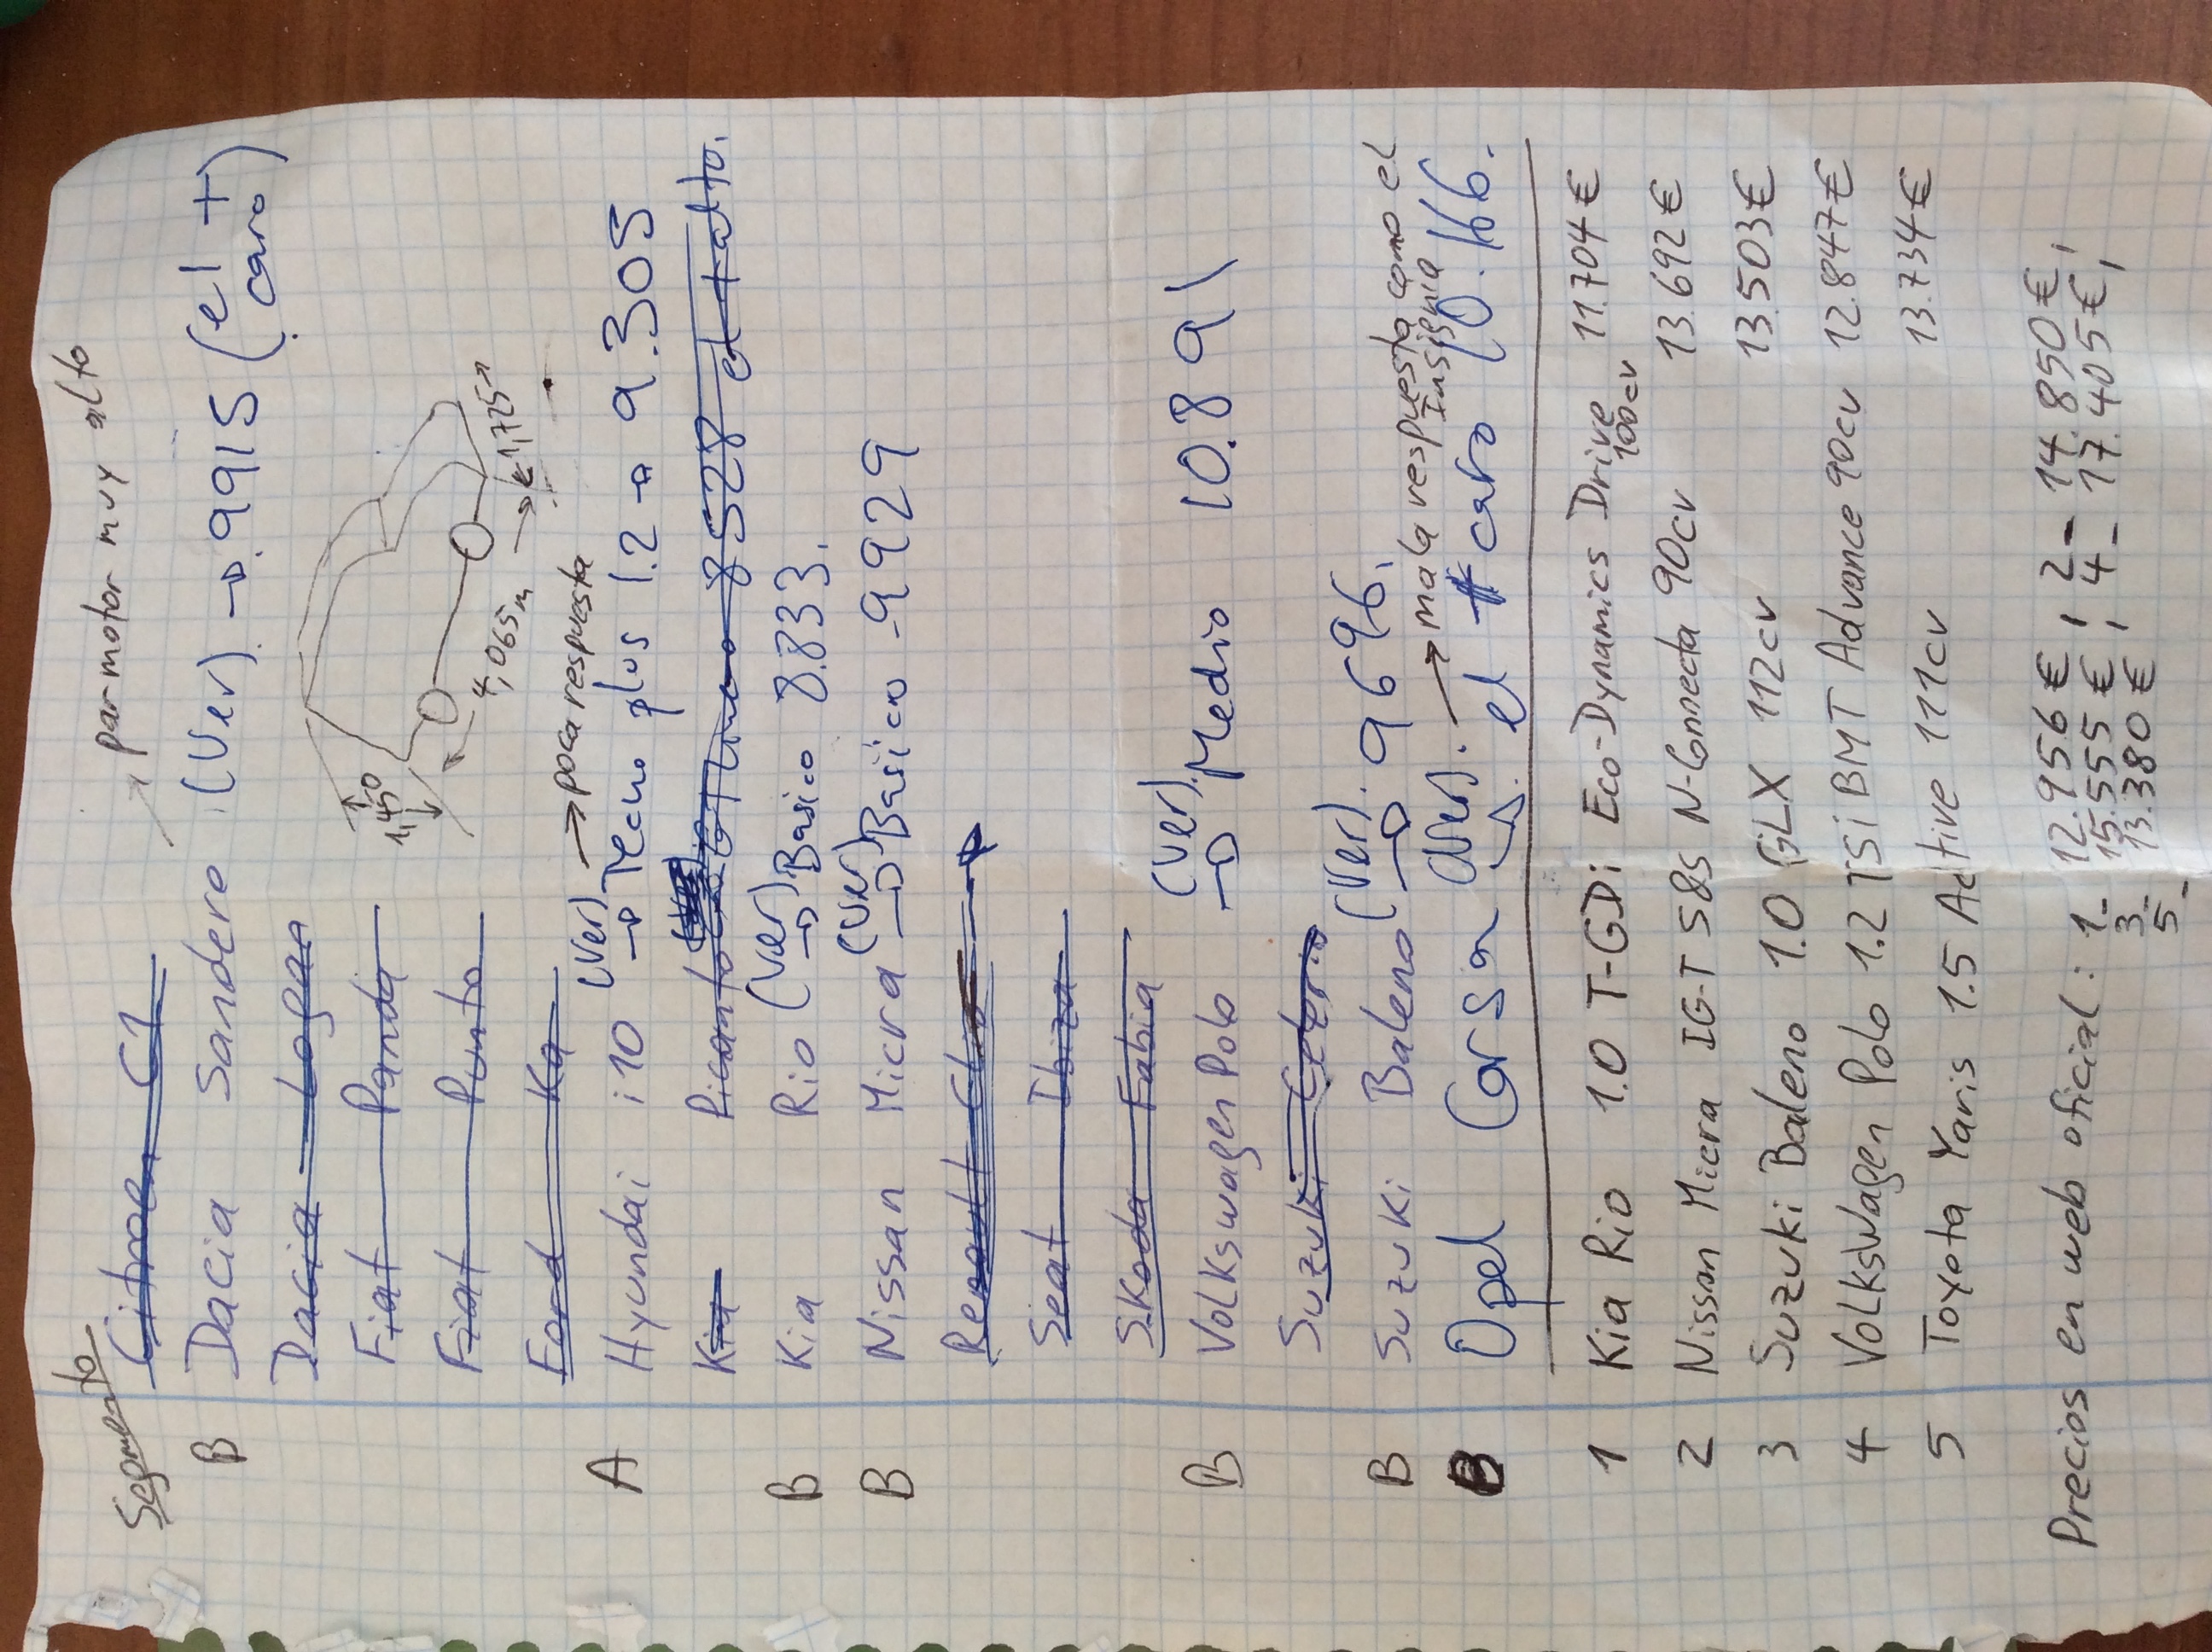 Segmento
par motor muy alto
Citroen C1
B Dacia Sandero (Ver) → 9915 (el + caro)
Dacia Logan
Fiat Panda
1,450
Fiat Punto
4,065m 1,725
Ford Ka
poca respuesta
A Hyundai i10 (Ver) → Tecno plus 1.2 → 9.305
Kia Picanto (Ver) → GT line 8528 el + alto.
B Kia Rio (Ver) → Basico 8.833.
B Nissan Micra (Ver) → Basico - 9929
Renault Clio →
Seat Ibiza
Skoda Fabia
B Volkswagen Polo (Ver). → Medio 10.891
Suzuki Celerio
B Suzuki Baleno (Ver). → 9696.
mala respuesta como el Insignia
B Opel Corsa (Ver). → el + caro 10.166.
1 Kia Rio 1.0 T-GDi Eco-Dynamics Drive 11.704 €
100cv
2 Nissan Micra IG-T S&S N-Connecta 90cv 13.692 €
3 Suzuki Baleno 1.0 GLX 112cv 13.503 €
4 Volkswagen Polo 1.2 TSi BMT Advance 90cv 12.847 €
5 Toyota Yaris 1.5 Active 111cv 13.734 €
Precios en web oficial: 1- 12.956 €, 2- 14.850 €,
3- 15.555 €, 4- 17.405 €,
5- 13.380 €